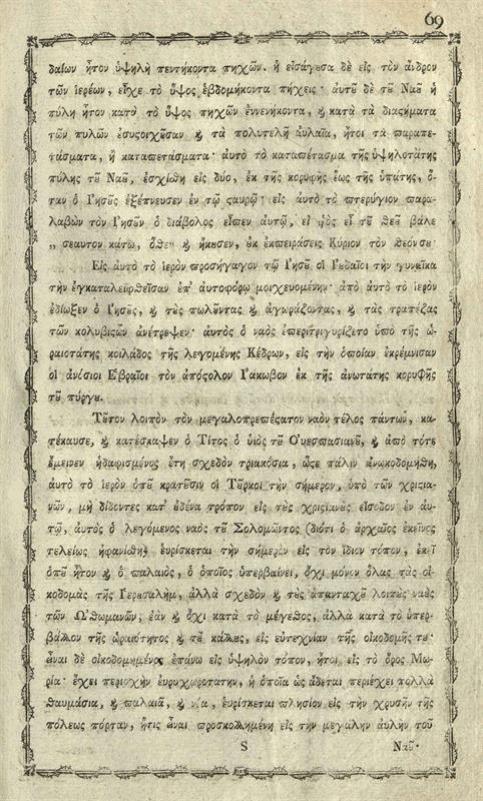 69
δαίων ἦτον ὑψηλὴ πεντήκοντα πηχῶν. ἡ εἰσάγεσα δὲ εἰς τὸν ἄνδρον
τῶν ἱερέων, εἶχε τὸ ὕψος ἑβδομήκοντα πήχεις· αὐτοῦ δὲ τοῦ Ναοῦ ἡ
πύλη ἦτον κατὰ τὸ ὕψος πηχῶν ἐννενήκοντα, ϗ κατὰ τὰ διαστήματα
τῶν πυλῶν ἐσυστοιχοῦσαν ϗ τὰ πολυτελῆ αὐλαῖα, ἤτοι τὰ παραπε-
τάσματα, ἢ καταπετάσματα· αὐτὸ τὸ καταπέτασμα τῆς ὑψηλοτάτης
πύλης τοῦ Ναοῦ, ἐσχίσθη εἰς δύο, ἐκ τῆς κορυφῆς ἕως τῆς ὑπάτης, ὅ-
ταν ὁ Ἰησοῦς ἐξέπνευσεν ἐν τῷ σταυρῷ· εἰς αὐτὸ τὸ πτερύγιον παρα-
λαβὼν τὸν Ἰησοῦν ὁ διάβολος εἶπεν αὐτῷ, εἰ υἱὸς εἶ τοῦ Θεοῦ βάλε
„ σεαυτον κάτω, ὅθεν ϗ ἤκουσεν, οὐκ ἐκπειράσεις Κύριον τὸν Θεόν σου·
Εἰς αὐτὸ τὸ ἱερὸν προσήγαγον τῷ Ἰησοῦ οἱ Ἰουδαῖοι τὴν γυναῖκα
τὴν ἐγκαταλειφθεῖσαν ἐπ' αὐτοφόρῳ μοιχευομένην· ἀπὸ αὐτὸ τὸ ἱερὸν
ἐδίωξεν ὁ Ἰησοῦς, ϗ τοὺς πωλοῦντας ϗ ἀγοράζοντας, ϗ τὰς τραπέζας
τῶν κολυβιςῶν ἀνέτρεψεν· αὐτὸς ὁ ναὸς ἐπεριτριγυρίζετο ὑπὸ τῆς ὡ-
ραιοτάτης κοιλάδος τῆς λεγομένης Κέδρων, εἰς τὴν ὁποίαν ἐκρέμνισαν
οἱ ἀνόσιοι Ἑβραῖοι τὸν ἀπόστολον Ἰάκωβον ἐκ τῆς ἀνωτάτης κορυφῆς
τοῦ πύργου.
Τοῦτον λοιπὸν τὸν μεγαλοπρεπέστατον ναὸν τέλος πάντων, κα-
τέκαυσε, ϗ κατέσκαψεν ὁ Τίτος ὁ υἱὸς τοῦ Οὐεσπασιανοῦ, ϗ ἀπὸ τότε
ἔμεινεν ἠδαφισμένος ἔτη σχεδὸν τριακόσια, ὥστε πάλιν ἀνῳκοδομήθη,
αὐτὸ τὸ ἱερὸν ὁποῦ κρατοῦσιν οἱ Τοῦρκοι τὴν σήμερον, ὑπὸ τῶν χριστια-
νῶν, μὴ δίδοντες κατ' οὐδένα τρόπον εἰς τοὺς χριστιανοὺς εἴσοδον ἐν αὐ-
τῷ, αὐτὸς ὁ λεγόμενος ναὸς τοῦ Σολομῶντος (διότι ὁ ἀρχαῖος ἐκεῖνος
τελείως ἠφανίσθη) εὑρίσκεται τὴν σήμερον εἰς τὸν ἴδιον τόπον, ἐκεῖ
ὁποῦ ἦτον ϗ ὁ παλαιὸς, ὁ ὁποῖος ὑπερβαίνει, ὄχι μόνον ὅλας τὰς οἰ-
κοδομὰς τῆς Ἱερουσαλὴμ, ἀλλὰ σχεδὸν ϗ τοὺς ἁπανταχοῦ λοιποὺς ναοὺς
τῶν Ὠθωμανῶν, ἐὰν ϗ ὄχι κατὰ τὸ μέγεθος, ἀλλὰ κατὰ τὸ ὑπερ-
βάλλον τῆς ὡραιότητος ϗ τοῦ κάλλους, εἰς εὐτεχνίαν τῆς οἰκοδομῆς του·
εἶναι δὲ οἰκοδομημένος ἐπάνω εἰς ὑψηλὸν τόπον, ἤτοι εἰς τὸ ὄρος Μω-
ρία· ἔχει περιοχὴν εὐρυχωροτάτην, ἡ ὁποία ὡς ᾄδεται περιέχει πολλὰ
θαυμάσια, ϗ παλαιὰ, ϗ νέα, εὑρίσκεται πλησίον εἰς τὴν χρυσῆν τῆς
πόλεως πόρταν, ἥτις εἶναι προσκολλημένη εἰς τὴν μεγάλην αὐλὴν τοῦ
S Ναοῦ·